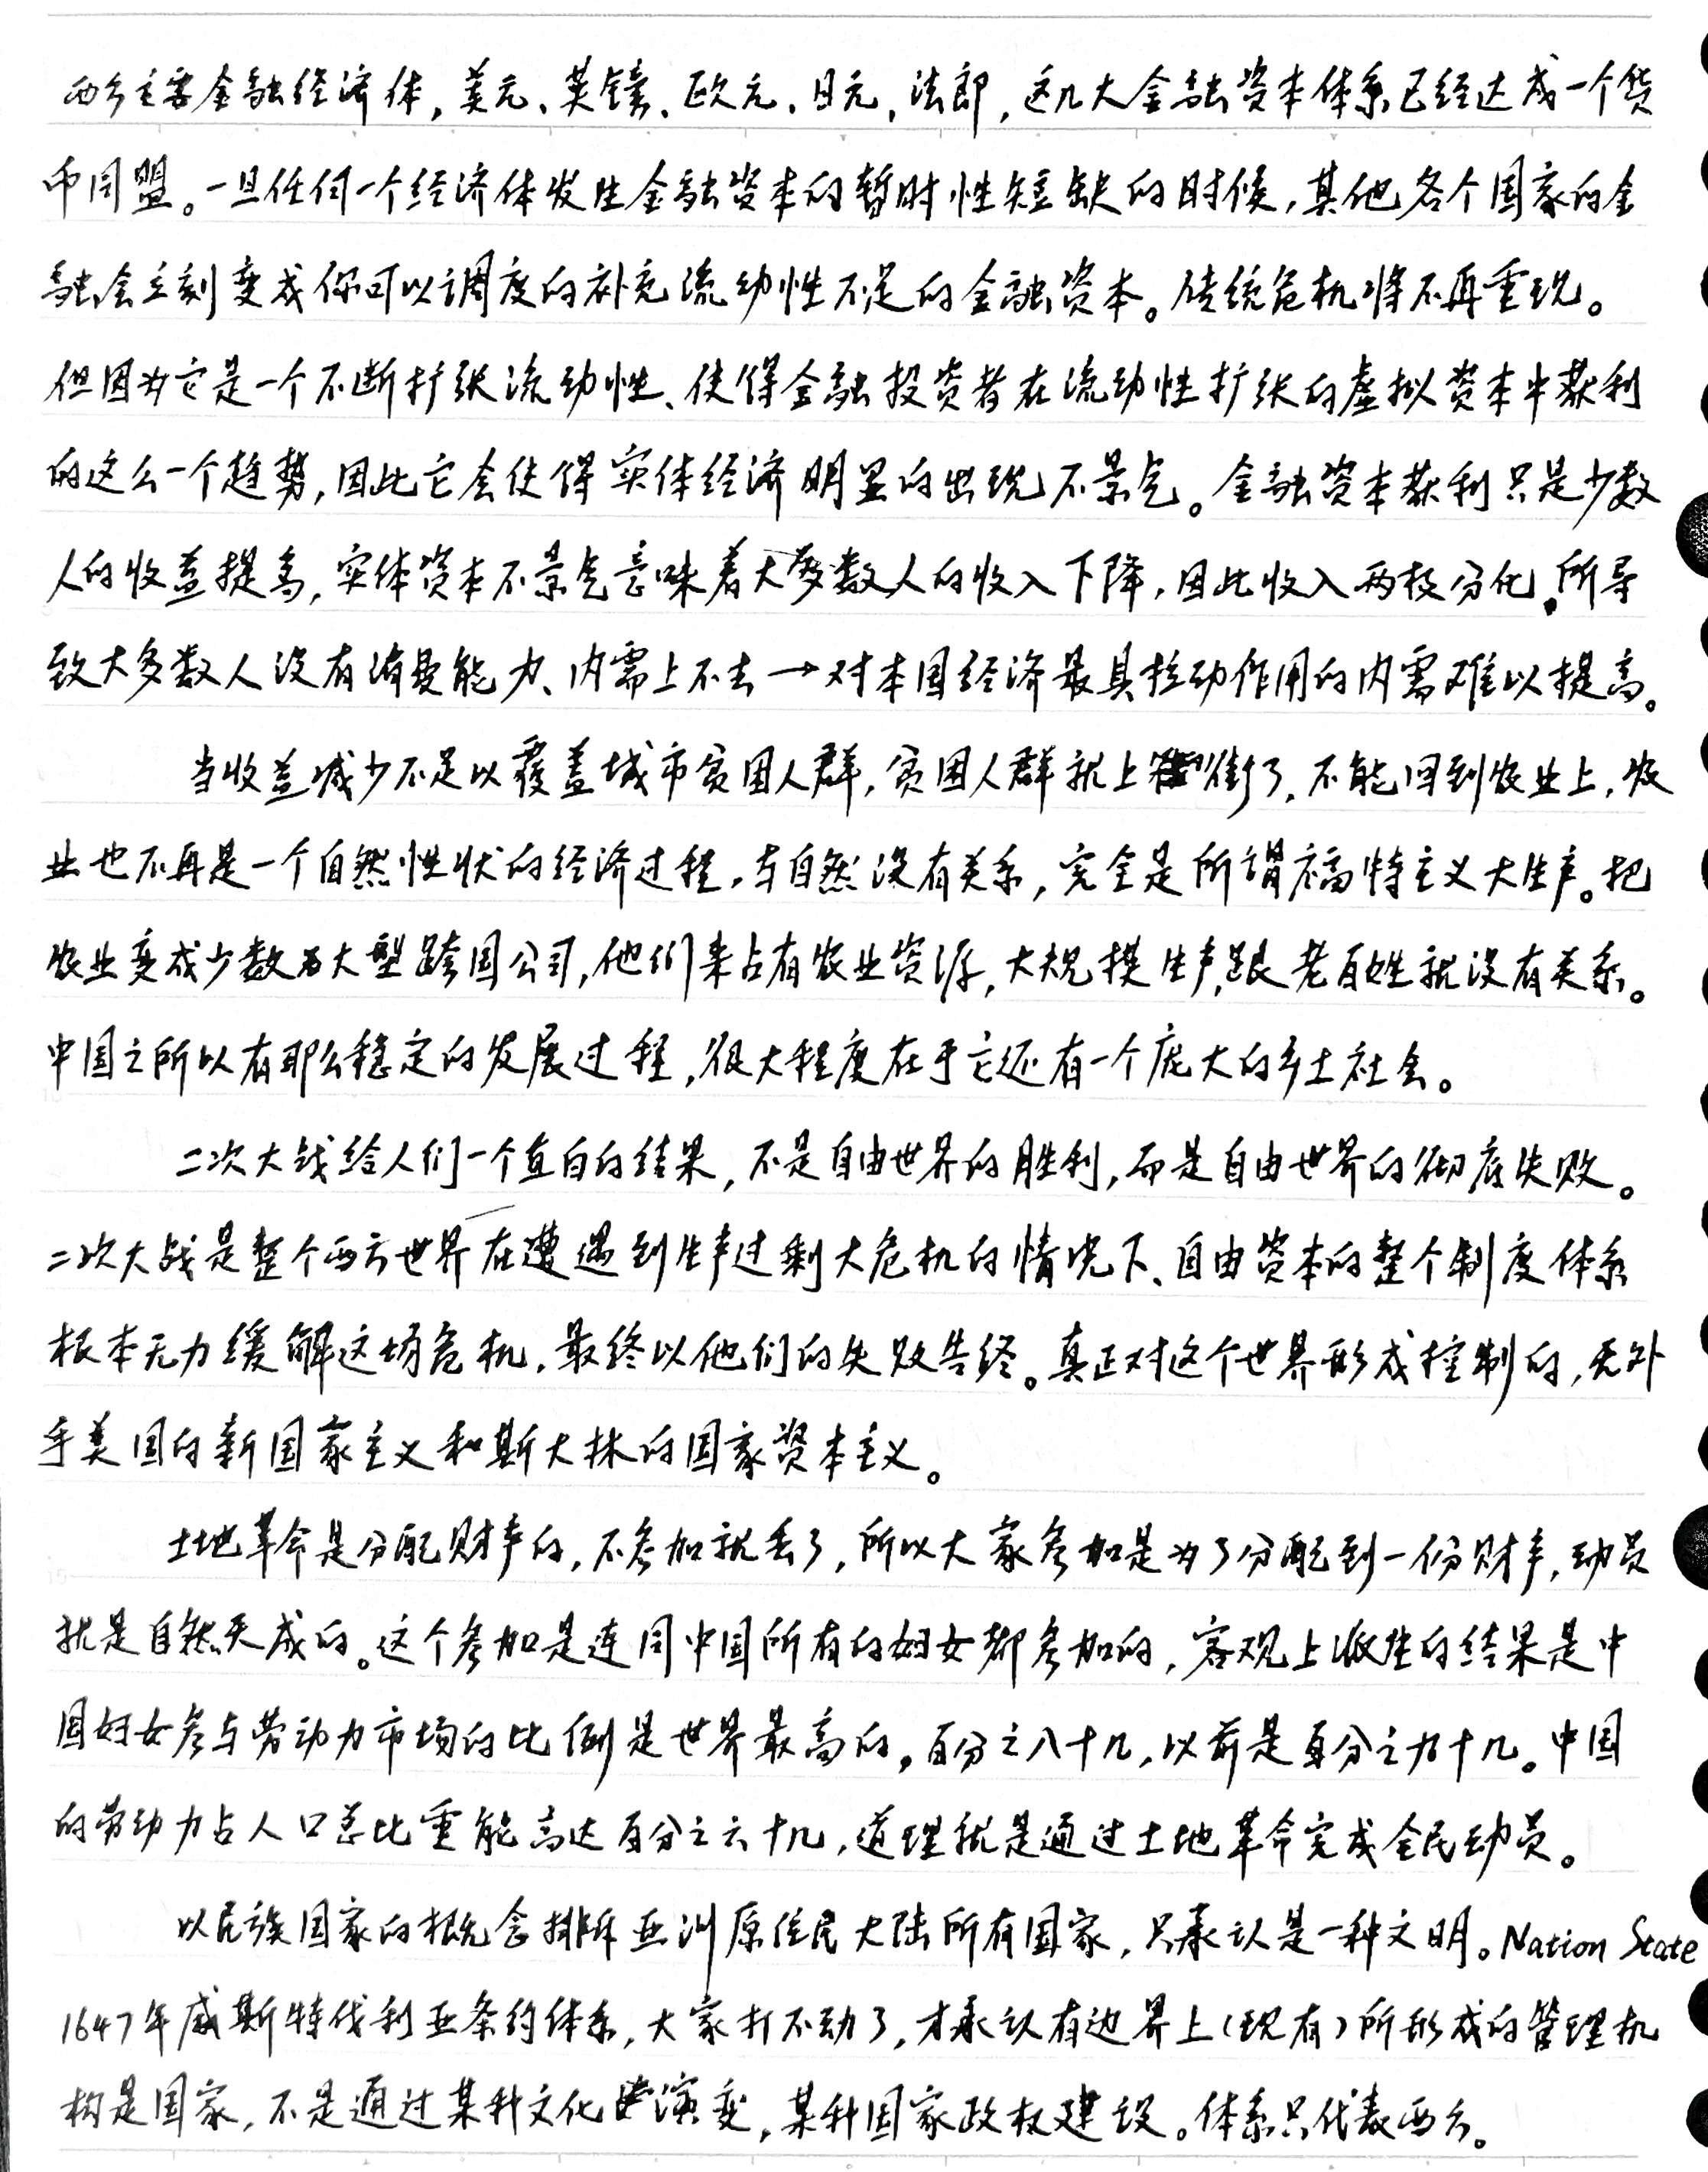 西方主要金融经济体，美元、英镑、欧元、日元，法郎，这几大金融资本体系已经达成一个货
币同盟。一旦任何一个经济体发生金融资本的暂时性短缺的时候，其他各个国家的金
融会立刻变成你可以调度的补充流动性不足的金融资本。传统危机将不再重现。
但因为它是一个不断扩张流动性、使得金融投资者在流动性扩张的虚拟资本中获利
的这么一个趋势，因此它会使得实体经济明显的出现不景气。金融资本获利只是少数
人的收益提高，实体资本不景气意味着大多数人的收入下降，因此收入两极分化，所导
致大多数人没有消费能力、内需上不去→对本国经济最具拉动作用的内需难以提高。
当收益减少不足以覆盖城市贫困人群，贫困人群就上街了，不能回到农业上，农
业也不再是一个自然性状的经济过程，与自然没有关系，完全是所谓福特主义大生产。把
农业变成少数为大型跨国公司，他们来占有农业资源，大规模生产，跟老百姓就没有关系。
中国之所以有那么稳定的发展过程，很大程度在于它还有一个庞大的乡土社会。
二次大战给人们一个直白的结果，不是自由世界的胜利，而是自由世界的彻底失败。
二次大战是整个西方世界在遭遇到生产过剩大危机的情况下、自由资本的整个制度体系
根本无力缓解这场危机，最终以他们的失败告终。真正对这个世界形成控制的，无外
乎美国的新国家主义和斯大林的国家资本主义。
土地革命是分配财产的，不参加就丢了，所以大家参加是为了分配到一份财产，动员
就是自然天成的。这个参加是连同中国所有的妇女都参加的，客观上派生的结果是中
国妇女参与劳动力市场的比例是世界最高的，百分之八十几，以前是百分之九十几。中国
的劳动力占人口总比重能高达百分之六十几，道理就是通过土地革命完成全民动员。
以民族国家的概念排斥亚洲原住民大陆所有国家，只承认是一种文明。Nation State
1647年威斯特伐利亚条约体系，大家打不动了，才承认有边界上（现有）所形成的管理机
构是国家，不是通过某种文化演变，某种国家政权建设。体系只代表西方。